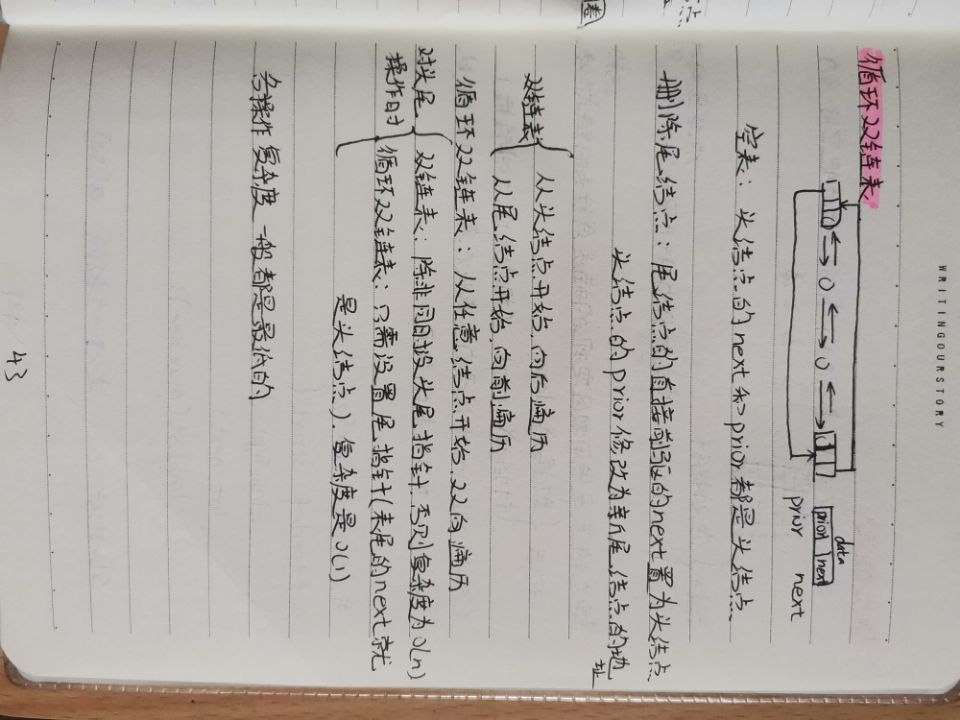 WRITINGOURSTORY
循环双链表
data
prior next
prior next
空表：头结点的next和prior都是头结点
删除尾结点：尾结点的直接前驱的next置为头结点
头结点的prior修改为新尾结点的地址
双链表
从头结点开始，向后遍历
从尾结点开始，向前遍历
循环双链表：从任意结点开始，双向遍历
对头尾操作时
双链表：除非同时设头尾指针，否则复杂度为O(n)
循环双链表：只需设置尾指针(表尾的next就
是头结点)，复杂度是O(1)
各操作复杂度一般都是最低的
43